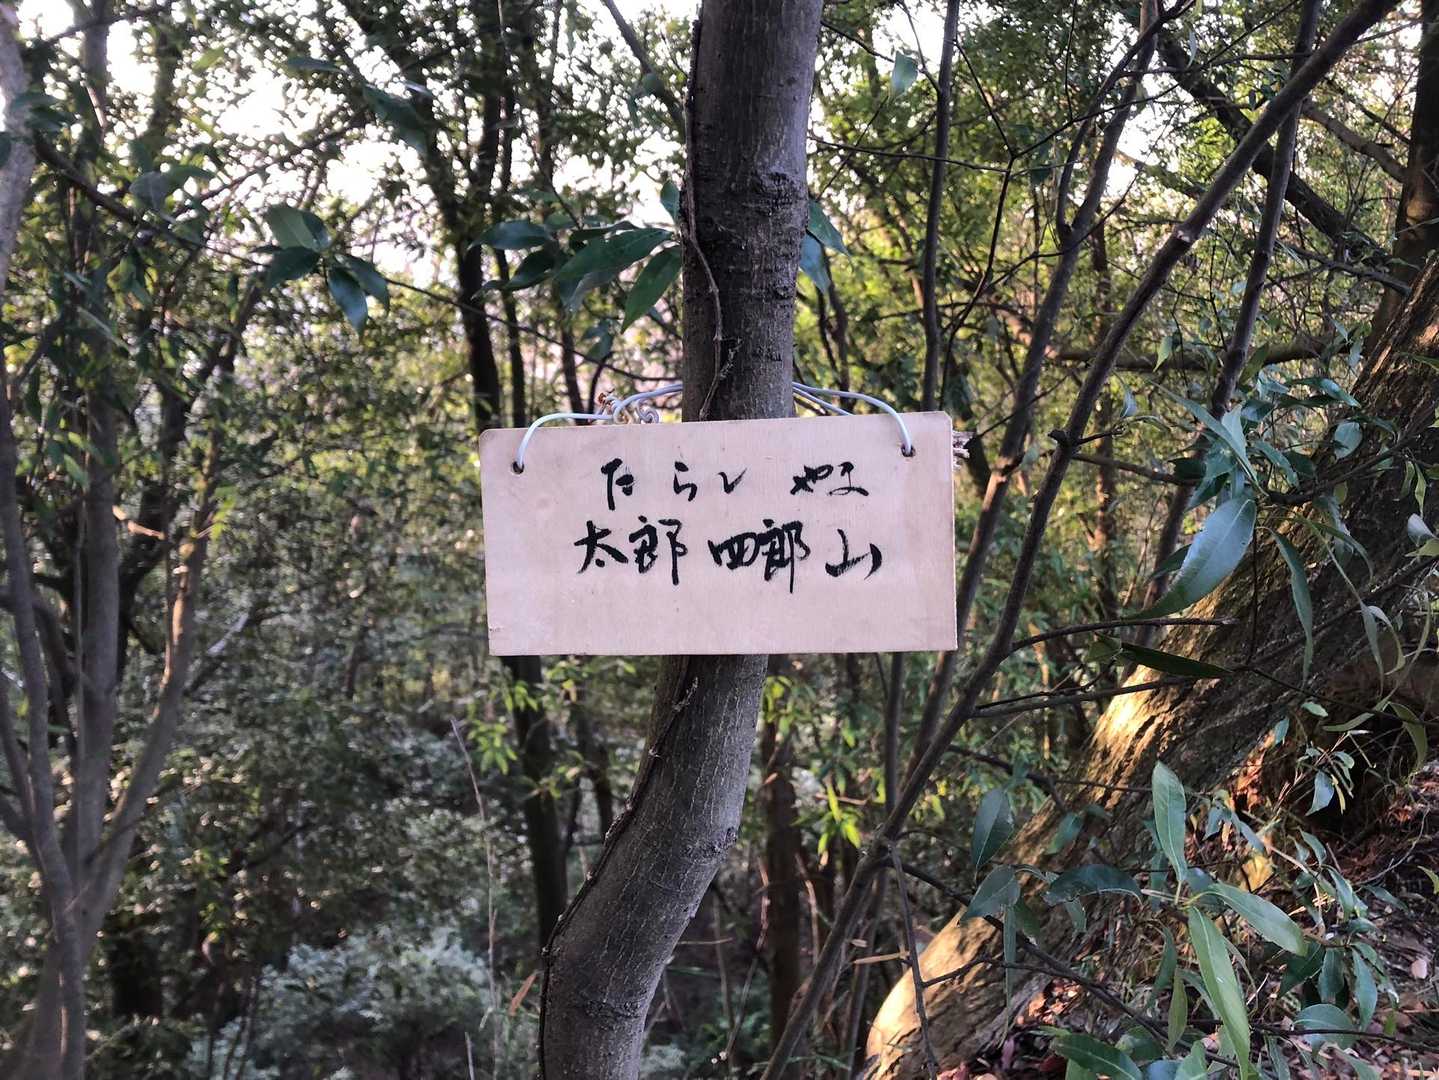 たらし やま
太郎四郎山